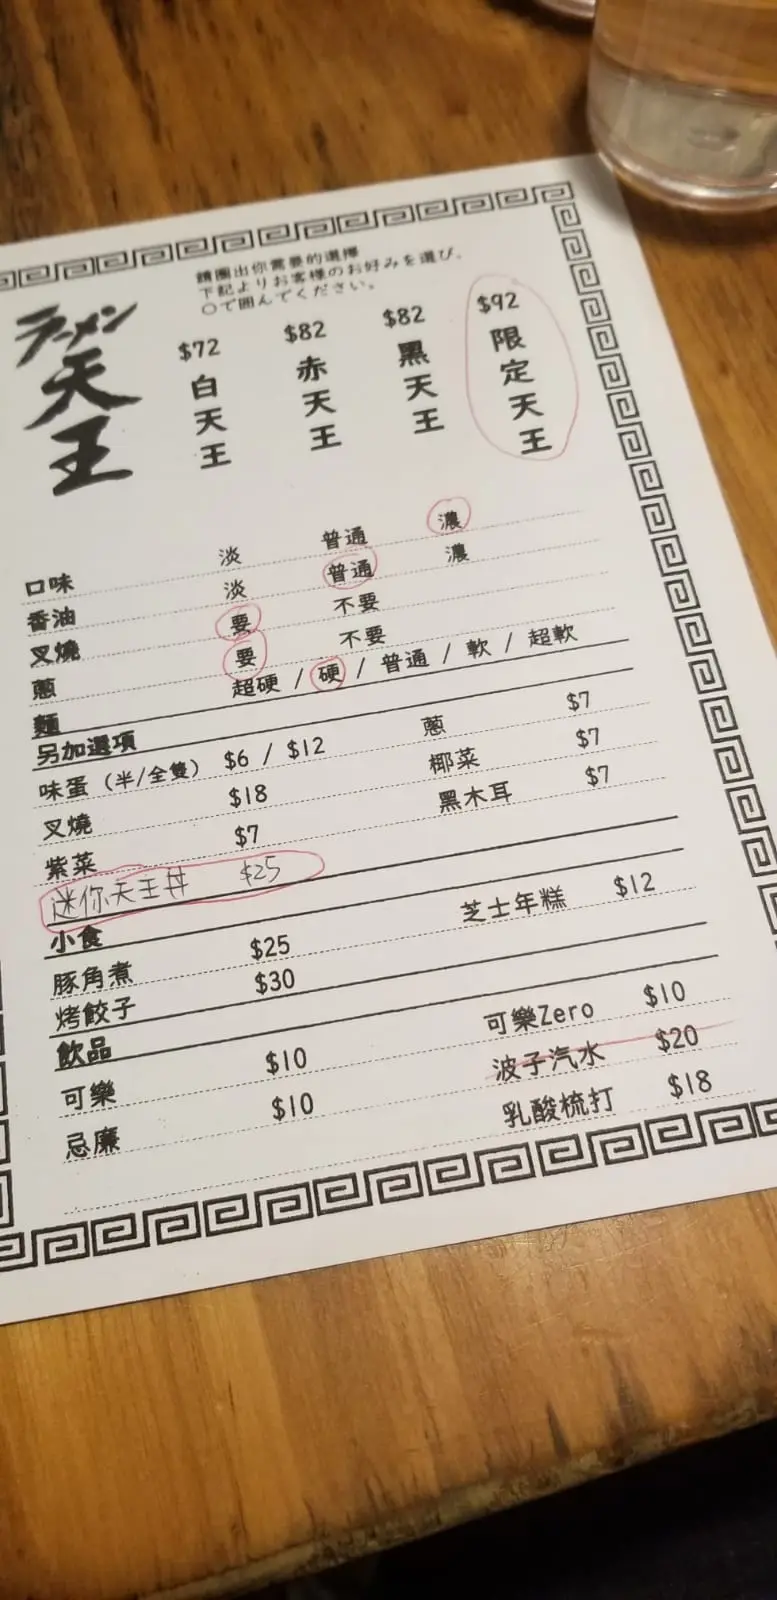 請圈出你需要的選擇
下記よりお客様のお好みを選び、
○で囲んでください。
ラーメン
天王
$72 白天王
$82 赤天王
$82 黑天王
$92 限定天王
口味 淡 普通 濃
香油 淡 普通 濃
叉燒 要 不要
蔥 要 不要
麵 超硬 / 硬 / 普通 / 軟 / 超軟
另加選項
味蛋 (半/全隻) $6 / $12 蔥 $7
叉燒 $18 椰菜 $7
紫菜 $7 黑木耳 $7
迷你天王丼 $25
小食
豚角煮 $25 芝士年糕 $12
烤餃子 $30
飲品
可樂 $10 可樂Zero $10
忌廉 $10 波子汽水 $20
乳酸梳打 $18